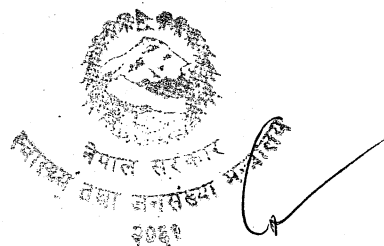 नेपाल सरकार
स्वास्थ्य तथा जनसंख्या मन्त्रालय